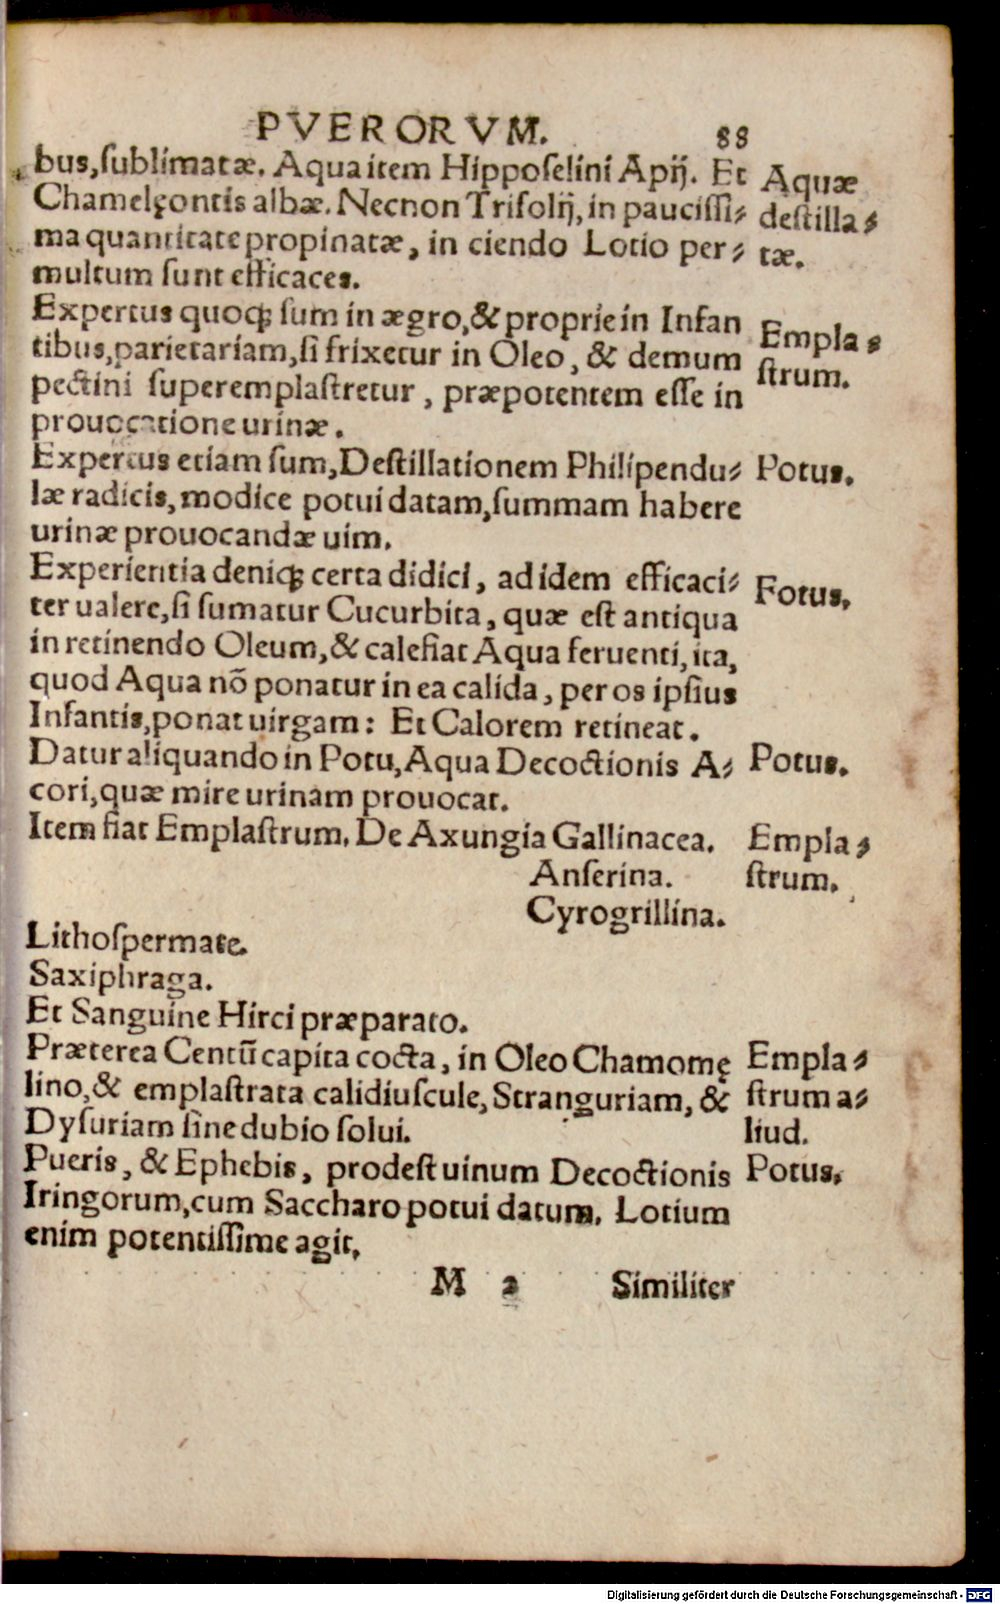 PVERORVM. 88
bus,ſublimatæ. Aqua item Hippoſelini Apij. Et
Chamelęontis albæ. Necnon Trifolij, in pauciſſi⸗
ma quantitate propinatæ, in ciendo Lotio per⸗
multum ſunt efficaces.
Aquæ
deſtilla⸗
tæ.
Expertus quoqꝫ ſum in ægro,& proprie in Infan
tibus,parietariam,ſi frixetur in Oleo, & demum
pectini ſuperemplaſtretur, præpotentem eſſe in
prouocatione urinæ.
Empla⸗
ſtrum.
Expertus etiam ſum,Deſtillationem Philipendu⸗
læ radicis,modice potui datam,ſummam habere
urinæ prouocandæ uim.
Potus.
Experientia deniqꝫ certa didici, ad idem efficaci⸗
ter ualere,ſi ſumatur Cucurbita, quæ eſt antiqua
in retinendo Oleum,& calefiat Aqua feruenti, ita,
quod Aqua nõ ponatur in ea calida, per os ipſius
Infantis,ponat uirgam: Et Calorem retineat.
Fotus.
Datur aliquando in Potu,Aqua Decoctionis A⸗
cori,quæ mire urinam prouocat.
Potus.
Item fiat Emplaſtrum. De Axungia Gallinacea.
Anſerina.
Cyrogrillina.
Empla⸗
ſtrum.
Lithoſpermate.
Saxiphraga.
Et Sanguine Hirci præparato.
Præterea Centũ capita cocta, in Oleo Chamomę
lino,& emplaſtrata calidiuſcule, Stranguriam, &
Dyſuriam ſine dubio ſolui.
Empla⸗
ſtrum a⸗
liud.
Pueris, & Ephebis, prodeſt uinum Decoctionis
Iringorum,cum Saccharo potui datum. Lotium
enim potentiſſime agit.
Potus.
M 2 Similiter
Digitalisierung gefördert durch die Deutsche Forschungsgemeinschaft - DFG